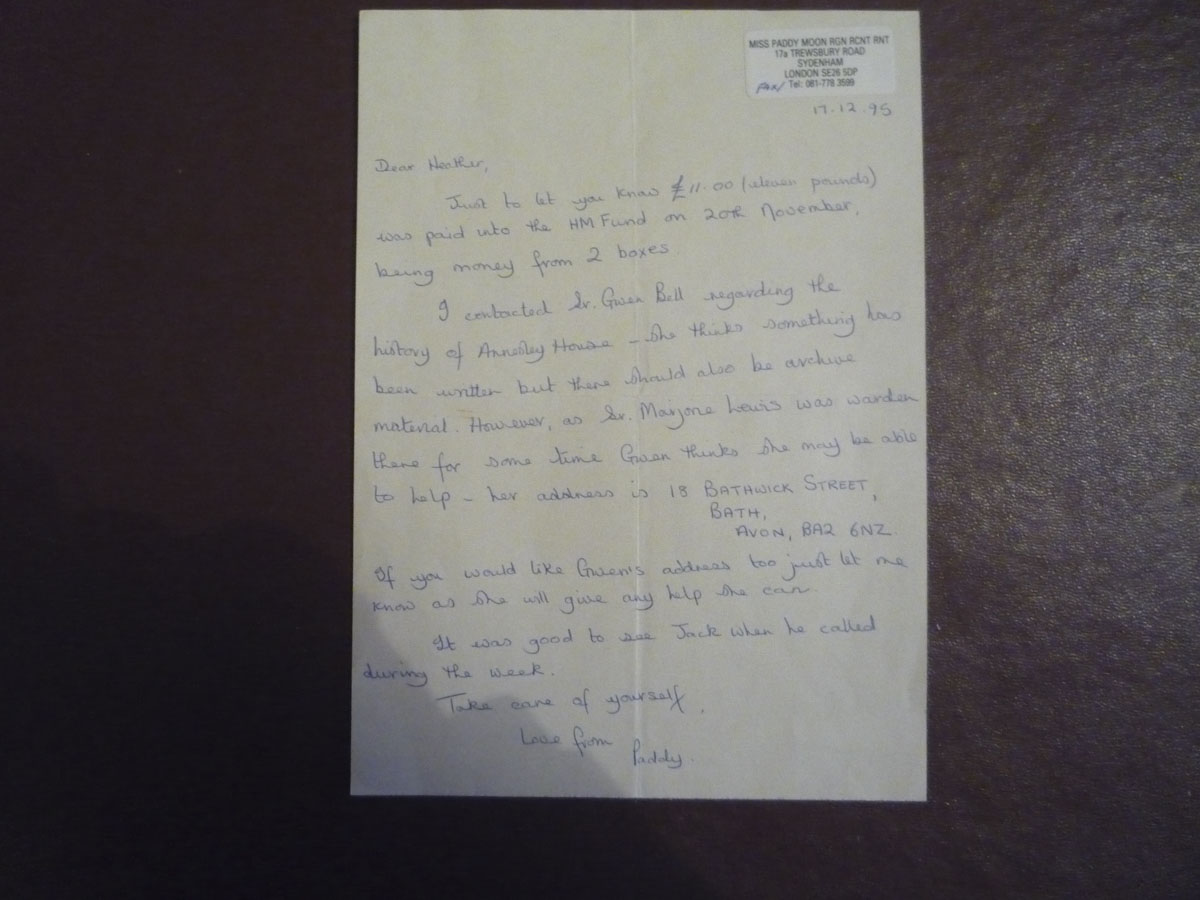 MISS PADDY MOON RGN RCNT RNT
17a TREWSBURY ROAD
SYDENHAM
LONDON SE26 5DP
FAX/ Tel: 081-778 3599
17.12.95
Dear Heather,
Just to let you know £11.00 (eleven pounds)
was paid into the HM Fund on 20th November,
being money from 2 boxes.
I contacted Sr. Gwen Bell regarding the
history of Annesley House - she thinks something has
been written but there should also be archive
material. However, as Sr. Marjorie Lewis was warden
there for some time Gwen thinks she may be able
to help - her address is 18 BATHWICK STREET,
BATH,
AVON, BA2 6NZ.
If you would like Gwen's address too just let me
know as she will give any help she can.
It was good to see Jack when he called
during the week.
Take care of yourself,
Love from
Paddy.